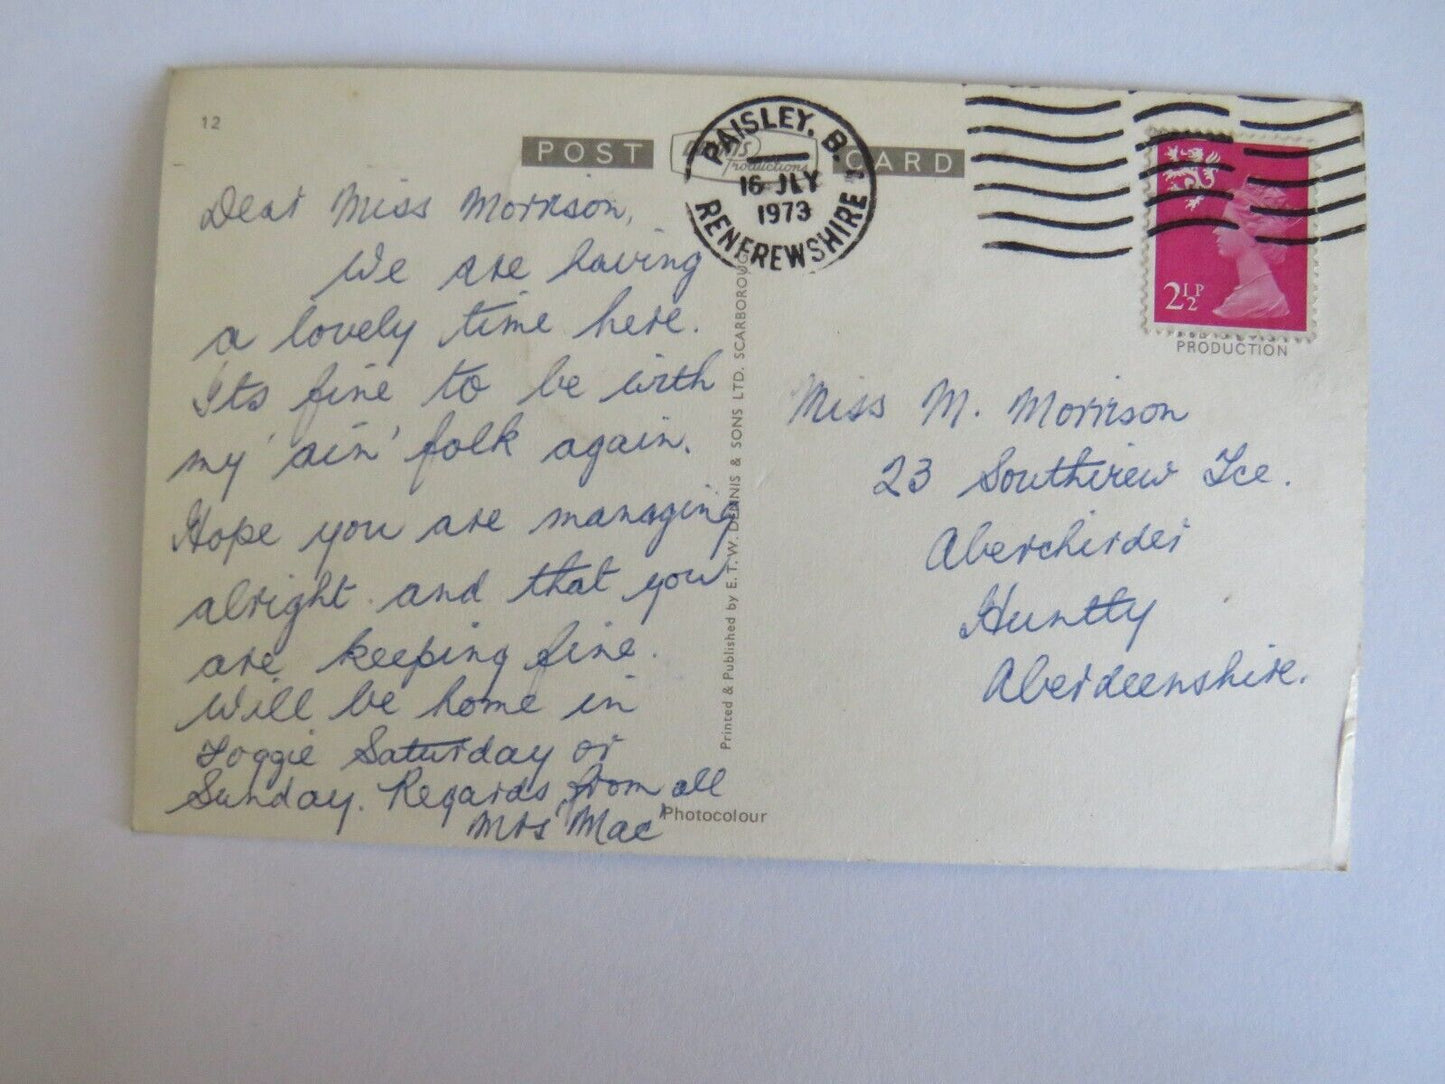 12
POST CARD
Productions
PAISLEY. B.
16 JLY
1973
RENFREWSHIRE
2½P
PRODUCTION
Dear Miss Morrison,
We are having
a lovely time here.
Its fine to be with
my 'ain' folk again.
Hope you are managing
alright and that you
are keeping fine.
Will be home in
Foggie Saturday or
Sunday. Regards from all
Mrs "Mac"
Miss M. Morrison
23 Southview Tce.
Aberchirder
Huntly
Aberdeenshire.
Printed & Published by E. T. W. DENNIS & SONS LTD. SCARBOROUG
Photocolour